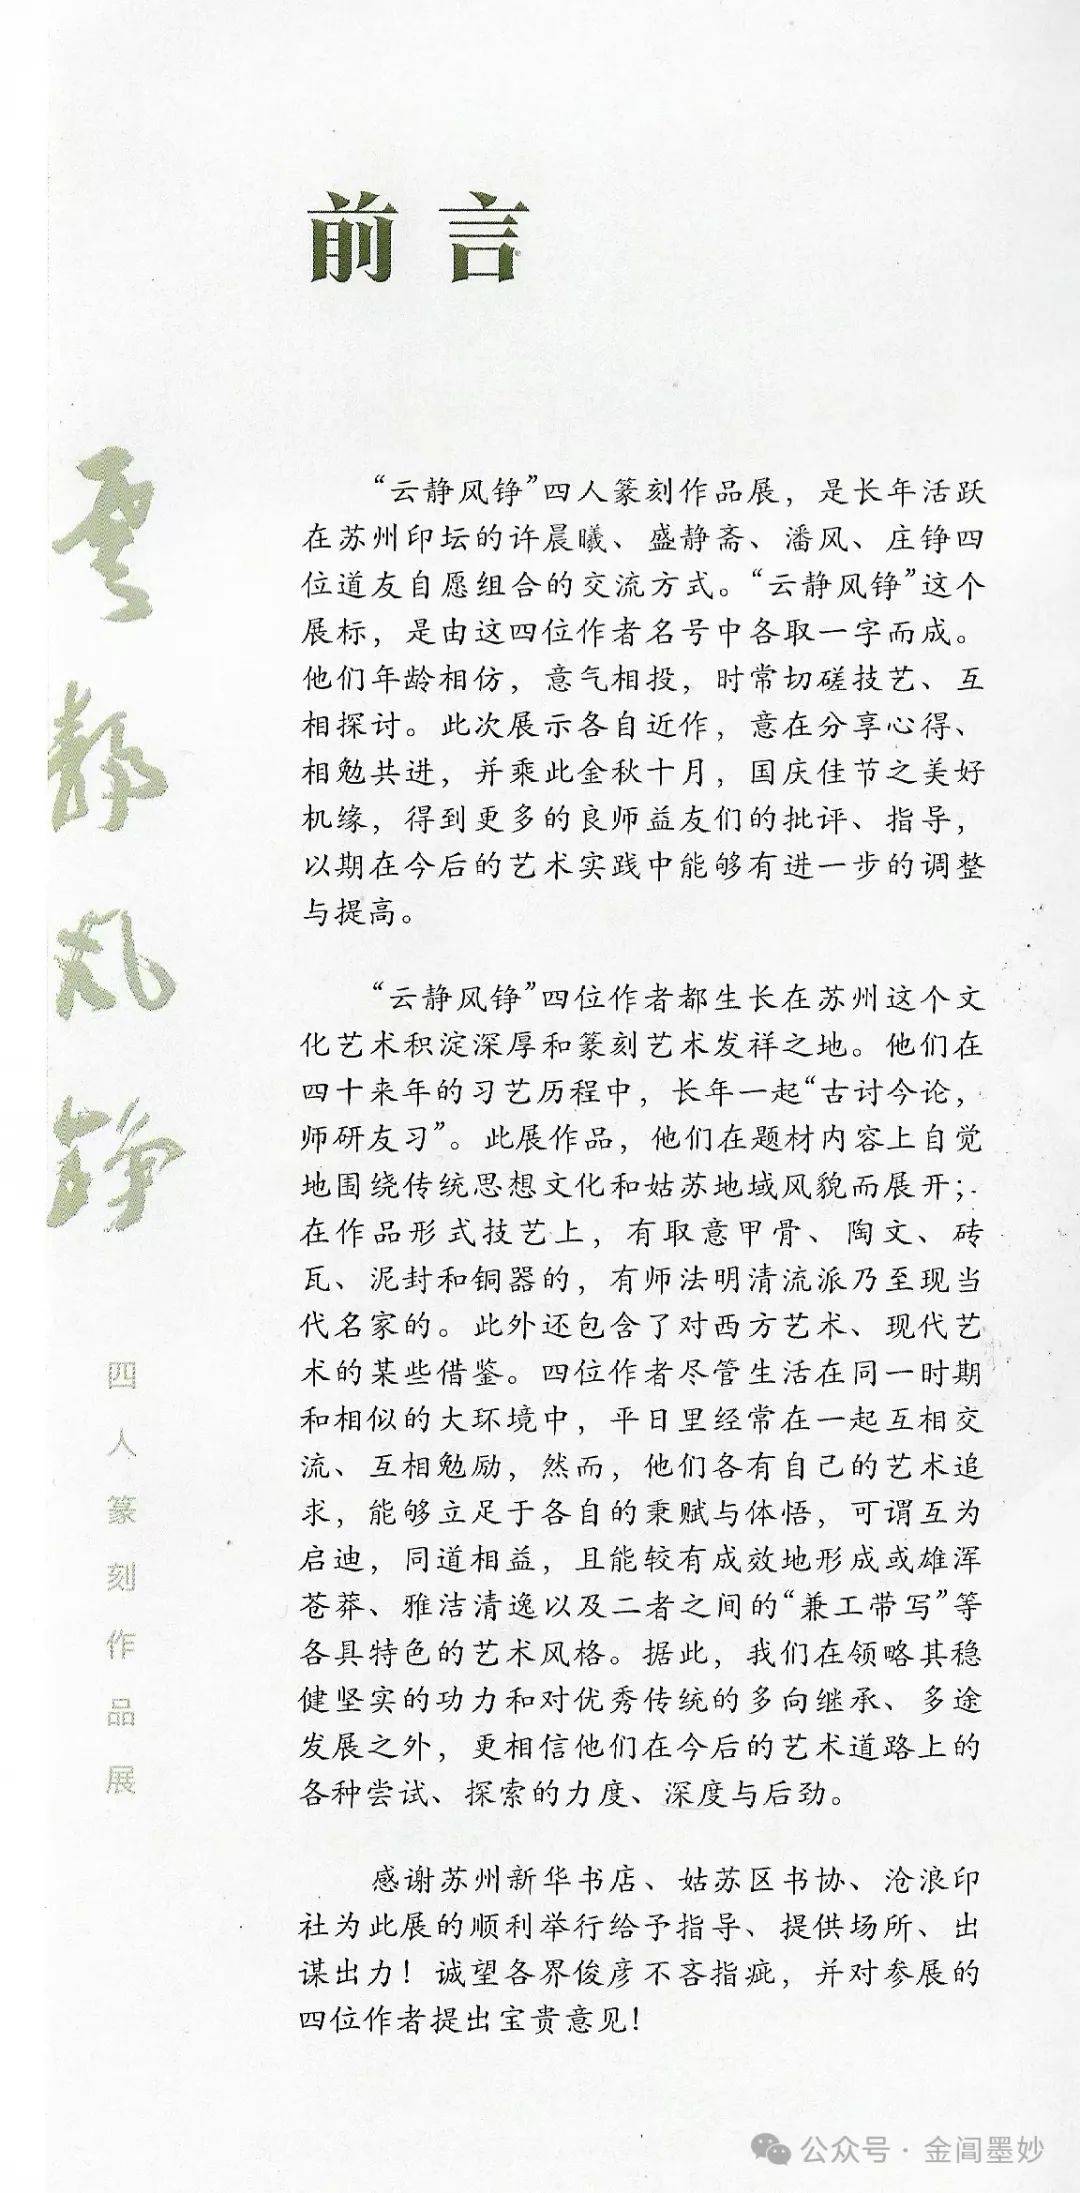 前言
云静风铮
四人篆刻作品展
“云静风铮”四人篆刻作品展，是长年活跃
在苏州印坛的许晨曦、盛静斋、潘风、庄铮四
位道友自愿组合的交流方式。“云静风铮”这个
展标，是由这四位作者名号中各取一字而成。
他们年龄相仿，意气相投，时常切磋技艺、互
相探讨。此次展示各自近作，意在分享心得、
相勉共进，并乘此金秋十月，国庆佳节之美好
机缘，得到更多的良师益友们的批评、指导，
以期在今后的艺术实践中能够有进一步的调整
与提高。
“云静风铮”四位作者都生长在苏州这个文
化艺术积淀深厚和篆刻艺术发祥之地。他们在
四十来年的习艺历程中，长年一起“古讨今论，
师研友习”。此展作品，他们在题材内容上自觉
地围绕传统思想文化和姑苏地域风貌而展开；
在作品形式技艺上，有取意甲骨、陶文、砖
瓦、泥封和铜器的，有师法明清流派乃至现当
代名家的。此外还包含了对西方艺术、现代艺
术的某些借鉴。四位作者尽管生活在同一时期
和相似的大环境中，平日里经常在一起互相交
流、互相勉励，然而，他们各有自己的艺术追
求，能够立足于各自的秉赋与体悟，可谓互为
启迪，同道相益，且能较有成效地形成或雄浑
苍莽、雅洁清逸以及二者之间的“兼工带写”等
各具特色的艺术风格。据此，我们在领略其稳
健坚实的功力和对优秀传统的多向继承、多途
发展之外，更相信他们在今后的艺术道路上的
各种尝试、探索的力度、深度与后劲。
感谢苏州新华书店、姑苏区书协、沧浪印
社为此展的顺利举行给予指导、提供场所、出
谋出力！诚望各界俊彦不吝指疵，并对参展的
四位作者提出宝贵意见！
公众号·金阊墨妙